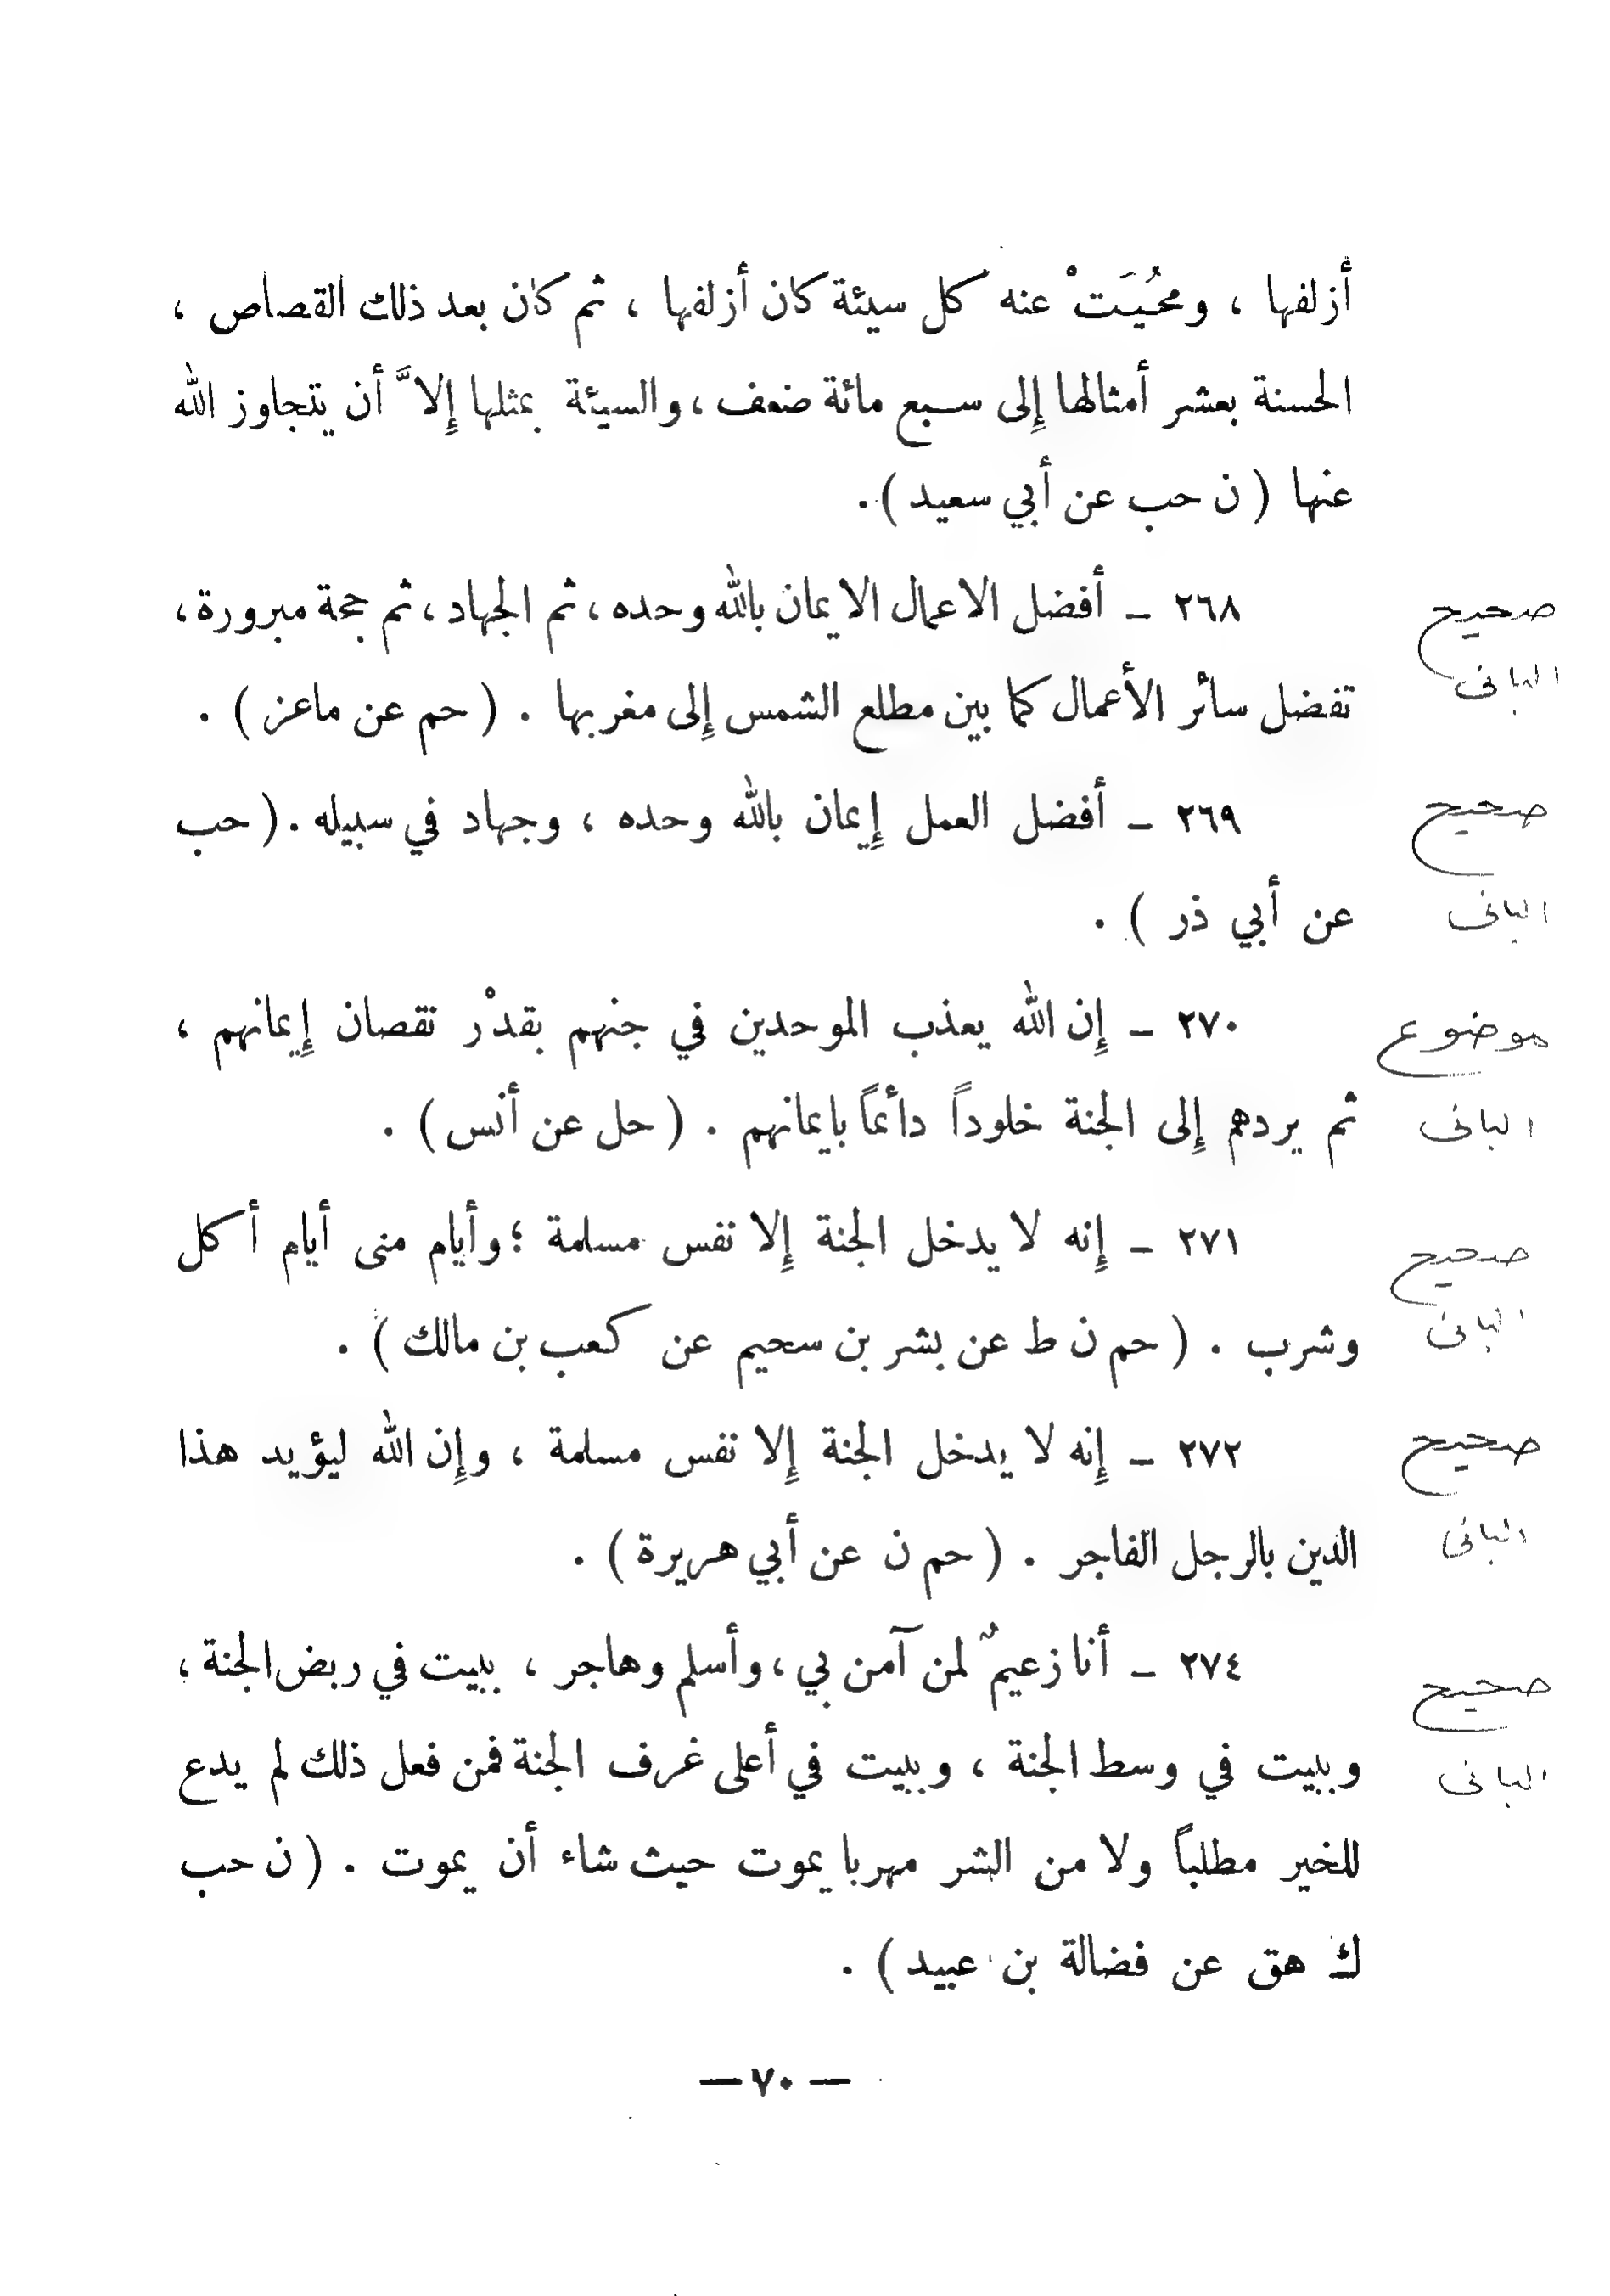 أزلفها ، ومحُيَتْ عنه كل سيئة كان أزلفها ، ثم كان بعد ذلك القصاص ،
الحسنة بعشر أمثالها إِلى سبع مائة ضعف ، والسيئة بمثلها إِلاَّ أن يتجاوز الله
عنها ( ن حب عن أبي سعيد ) .
٢٦٨ ــ أفضل الاعمال الايمان بالله وحده ، ثم الجهاد ، ثم حجة مبرورة ،
صحيح
البانى
تفضل سائر الأعمال كما بين مطلع الشمس إِلى مغربها . ( حم عن ماعز ) .
٢٦٩ ــ أفضل العمل إِيمان بالله وحده ، وجهاد في سبيله . ( حب
صحيح
عن أبي ذر ) .
البانى
٢٧٠ ــ إِن الله يعذب الموحدين في جنهم بقدْر نقصان إِيمانهم ،
موضوع
ثم يردهم إِلى الجنة خلوداً دائماً بايمانهم . ( حل عن أنس ) .
البانى
٢٧١ ــ إِنه لا يدخل الجنة إِلا نفس مسلمة ؛ وأيام منى أيام أكل
صحيح
البانى
وشرب . ( حم ن ط عن بشر بن سحيم عن كعب بن مالك ) .
٢٧٢ ــ إِنه لا يدخل الجنة إِلا نفس مسلمة ، وإِن الله ليؤيد هذا
صحيح
الدين بالرجل الفاجر . ( حم ن عن أبي هريرة ) .
البانى
٢٧٤ ــ أنا زعيمٌ لمن آمن بي ، وأسلم وهاجر ، ببيت في ربض الجنة ،
صحيح
وببيت في وسط الجنة ، وببيت في أعلى غرف الجنة فمن فعل ذلك لم يدع
البانى
للخير مطلباً ولا من الشر مهربا يموت حيث شاء أن يموت . ( ن حب
ك هق عن فضالة بن عبيد ) .
— ٧٠ —